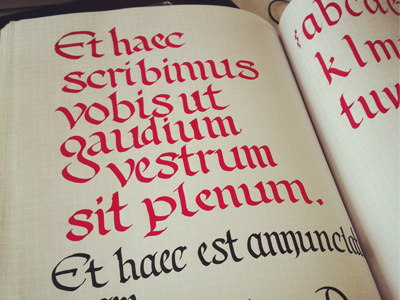 Et haec
scribimus
vobis ut
gaudium
vestrum
sit plenum.
Et haec est
abcde
klm
tuv